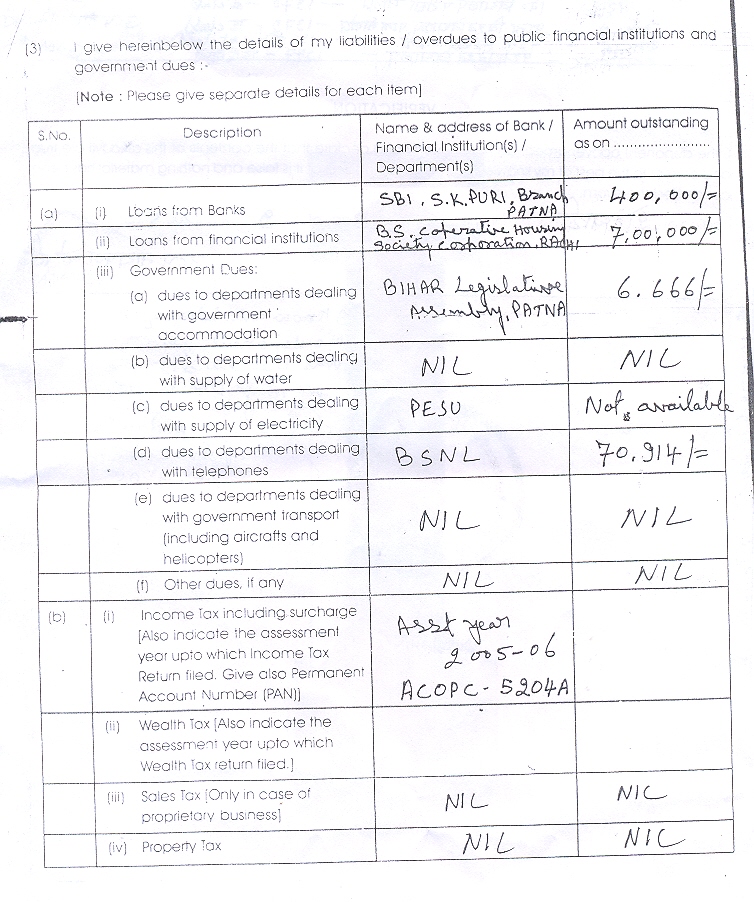 (3) I give hereinbelow the details of my liabilities / overdues to public financial institutions and
government dues :-
[Note : Please give separate details for each item]
S.No. Description Name & address of Bank / Amount outstanding
Financial Institution(s) / as on ........................
Department(s)
(a) (i) Loans from Banks SBI, S.K.PURI, Branch 400,000/=
PATNA
(ii) Loans from financial institutions B.S. Coperative Housing 7,00,000/=
Society Corporation,
(iii) Government Dues:
(a) dues to departments dealing BIHAR Legislative 6.666/=
with government Assembly, PATNA
accommodation
(b) dues to departments dealing NIL NIL
with supply of water
(c) dues to departments dealing PESU Not available
with supply of electricity
(d) dues to departments dealing BSNL 70.914/=
with telephones
(e) dues to departments dealing
with government transport NIL NIL
(including aircrafts and
helicopters)
(f) Other dues, if any NIL NIL
(b) (i) Income Tax including surcharge Asst year
[Also indicate the assessment 2005-06
year upto which Income Tax
Return filed. Give also Permanent
Account Number (PAN)] ACOPC-5204A
(ii) Wealth Tax [Also indicate the
assessment year upto which
Wealth Tax return filed.]
(iii) Sales Tax [Only in case of NIL NIL
proprietary business]
(iv) Property Tax NIL NIL